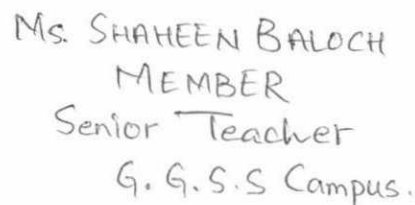 Ms. SHAHEEN BALOCH
MEMBER
Senior Teacher
G. G. S. S Campus.